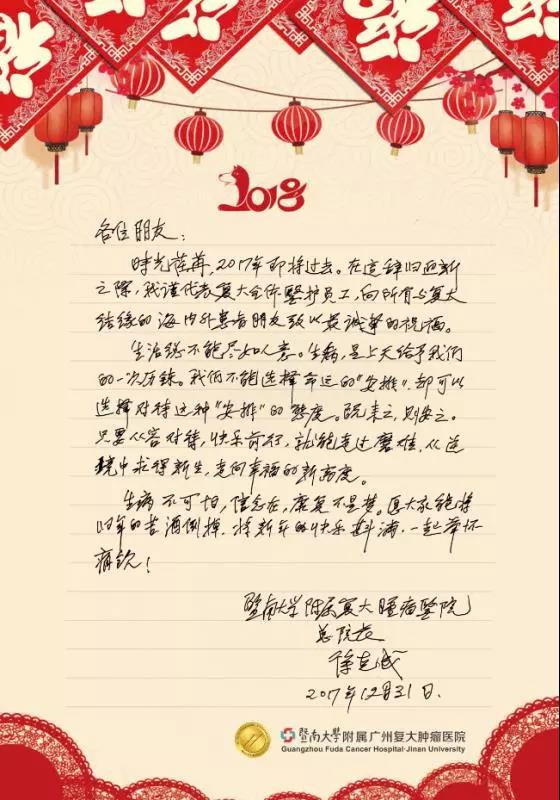 福
2018
各位朋友：
时光荏苒，2017年即将过去。在这辞旧迎新
之际，我谨代表复大全体医护员工，向所有与复大
结缘的海内外患者朋友致以最诚挚的祝福。
生活总不能尽如人意。生病，是上天给予我们
的一次历练。我们不能选择命运的“安排”，却可以
选择对待这种“安排”的态度。既来之，则安之。
只要从容对待，快乐前行，就能走过磨难，从逆
境中求得新生，走向幸福的新高度。
生病不可怕，信念在，康复不是梦。愿大家能将
旧年的苦酒倒掉，将新年的快乐斟满，一起举杯
痛饮！
暨南大学附属复大肿瘤医院
总院长
徐克成
2017年12月31日.
暨南大学附属广州复大肿瘤医院
Guangzhou Fuda Cancer Hospital·Jinan University